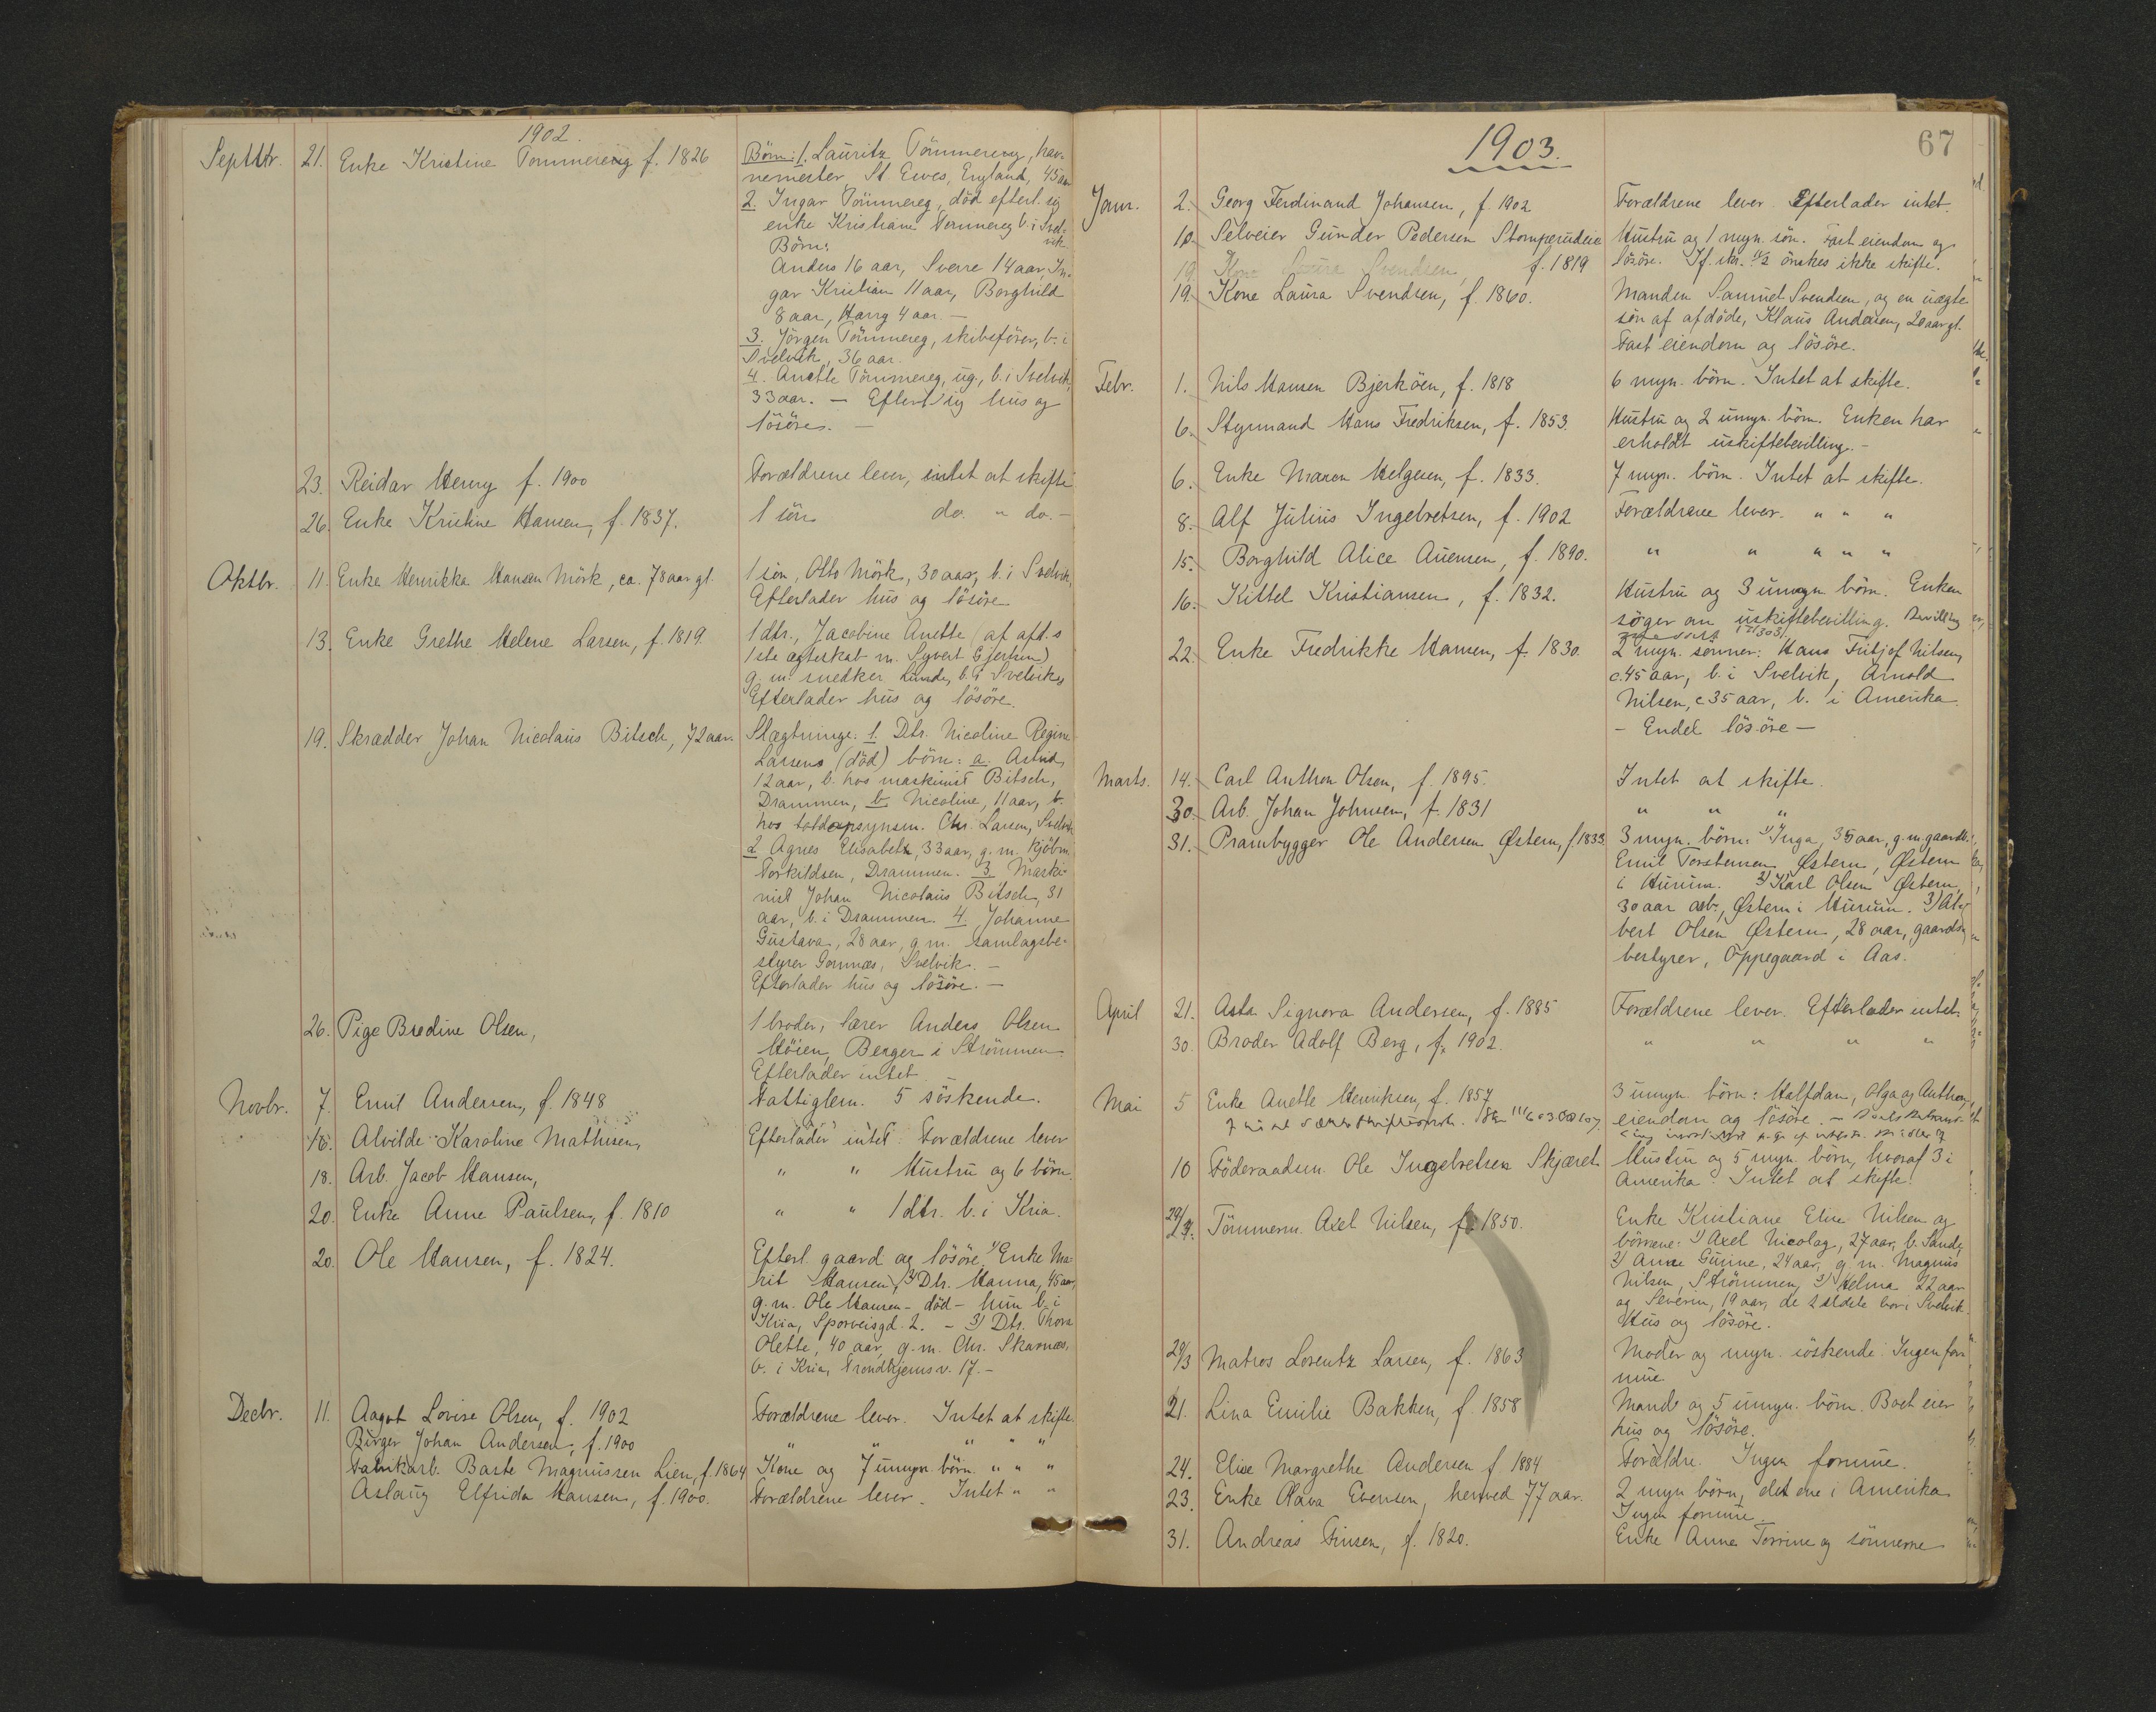 1902.
Septbr. 21. Enke Kristine Tömmereeg f. 1826
Börn: 1. Lauritz Tömmereeg, hav-
nemester, St Eives, England, 45 aar
2. Ingar Tömmereg, död efterl. sig
enke Kristiane Tömmereg b. i Svel-
vik
Börn:
Anders 16 aar, Sverre 14 aar, In-
gar Kristian 11 aar, Borghild
8 aar, Harry 4 aar. —
3. Jörgen Tömmereg, skibsförer, b. i
Svelvik, 36 aar.
4. Anette Tömmereg, ug., b. i Svelvik,
33 aar. — Efterl. sig hus og
lösöre. —
23. Reidar Henry f. 1900 Forældrene lever, intet at skifte
26. Enke Kristine Hansen, f. 1837. 1 sön do. " do. —
Oktbr. 11. Enke Henrikka Hansen Mörk, ca. 78 aar gl. 1 sön, Otto Mörk, 30 aar, b. i Svelvik,
Efterlader hus og lösöre
13. Enke Grethe Helene Larsen, f. 1819. 1 dtr., Jacobine Anette (af afd.s
1ste ægteskab m. Syvert Gjertsen)
g. m. snedker Lunde, b. i Svelvik,
Efterlader hus og lösöre.
19. Skrædder Johan Nicolaus Bitsch, 72 aar. Slægtninge: 1. Dtr. Nicoline Regine
Larsens (död) börn: a. Astrid,
12 aar, b. hos maskinist Bitsch,
Drammen, b. Nicoline, 11 aar, b.
hos toldopsynsm. Chr. Larsen, Svelvik
2. Agnes Elisabeth, 33 aar, g. m. kjöbm.
Torkildsen, Drammen. 3. Maski-
nist Johan Nicolaus Bitsch, 31
aar, b. i Drammen. 4. Johanne
Gustava, 28 aar, g. m. samlagsbe-
styrer Gornæs, Svelvik. —
Efterlader hus og lösöre. —
26. Pige Bredine Olsen, 1 broder, lærer Anders Olsen
Höien, Berger i Strömmen
Efterlader intet
Novbr. 7. Emil Andersen, f. 1848 Fattiglem. 5 söskende.
16. Alvilde Karoline Mathisen, Efterlader intet. Forældrene lever
18. Arb. Jacob Hansen, " " Hustru og 6 börn.
20. Enke Anne Paulsen, f. 1810 " " 1 dtr. b. i Kria.
20. Ole Hansen, f. 1824. Efterl. gaard og lösöre. 1) Enke Ma-
rit Hansen, 2) Dtr. Hanna, 45 aar,
g. m. Ole Hansen - död - hun b. i
Kria, Sporveisgd. 2. - 3) Dtr. Thora
Olette, 40 aar, g. m. Chr. Skarnæs,
b. i Kria, Trondhjemsv. 17. -
Decbr. 11. Aagot Lovise Olsen, f. 1902 Forældrene lever. Intet at skifte.
Birger Johan Andersen, f. 1900 " " " " "
Fabrikarb. Barte Magnussen Lien, f. 1864 Kone og 7 umyn. börn. " " "
Aslaug Elfrida Hansen, f. 1900. Forældrene lever. Intet " "
67
1903.
Janr. 2. Georg Ferdinand Johansen, f. 1902 Forældrene lever. Efterlader intet.
10. Selveier Gunder Pedersen Stomperudeie Hustru og 1 myn. sön. Fast eiendom og
f. 1819 lösöre. If. skr. önskes ikke skifte.
19. Kone Laura Svendsen,
19. Kone Laura Svendsen, f. 1860. Manden Samuel Svendsen, og en uægte
sön af afdöde, Klaus Andersen, 20 aar gl.
Fast eiendom og lösöre.
Febr. 1. Nils Hansen Bjerköen, f. 1818 6 myn. börn. Intet at skifte.
6. Styrmand Hans Fredriksen, f. 1853. Hustru og 2 umyn. börn. Enken har
erholdt uskiftebevilling. -
6. Enke Maren Helgesen, f. 1833. 7 myn. börn. Intet at skifte.
8. Alf Julius Ingebretsen, f. 1902 Forældrene lever. " " "
15. Borghild Alice Auensen, f. 1890. " " " " "
16. Kittel Kristiansen, f. 1832. Hustru og 3 umyn börn. Enken
söger om uskiftebevilling. Bevilling
22. Enke Fredrikke Hansen, f. 1830. 2 myn. sönner: Hans Fritjof Nilsen,
c. 45 aar, b. i Svelvik, Arnold
Nilsen, c 35 aar, b. i Amerika
- Endel lösöre -
Marts. 14. Carl Anthon Olsen, f. 1895. Intet at skifte.
30. Arb. Johan Johnsen, f. 1831 " " "
31. Prambygger Ole Andersen Østern, f 1833 3 myn. börn: 1) Inga, 35 aar, g. m. gaardb.
Emil Torstensen Østern, Østern
i Hurum. 2) Karl Olsen Østern,
30 aar arb., Østern i Hurum. 3) Al-
bert Olsen Østern, 28 aar, gaards-
bestyrer, Oppegaard i Aas.
April 21. Asta Signora Andersen, f. 1885 Forældrene lever. Efterlader intet.
30. Broder Adolf Berg, f. 1902. " " " "
Mai 5 Enke Anette Henriksen, f. 1857 3 umyn. börn: Halfdan, Olga og Anthon,
eiendom og lösöre. -
10 Föderaadsm. Ole Ingebretsen Skjæret Hustru og 5 myn. börn, hvoraf 3 i
Amerika. Intet at skifte.
Tömmerm. Axel Nilsen, f. 1850. Enke Kristiane Elise Nilsen og
börnene: 1) Axel Nicolay, 27 aar, b. Sande,
2) Anne Gunne, 24 aar, g. m. Magnus
Nilsen, Strömmen, 3) Helma 22 aar
og Severin, 19 aar, de 2 sidste bor i Svelvik.
Hus og lösöre.
29/3 Matros Lorentz Larsen, f. 1863 Moder og myn. söskende. Ingen for-
mue
21. Lina Emilie Bakken, f. 1858 Mand og 5 umyn. börn. Boet eier
hus og lösöre.
24. Elise Margrethe Andersen f 1884 Forældre. Ingen formue.
23. Enke Olava Evensen, henved 77 aar. 2 myn börn, det ene i Amerika
Ingen formue.
31. Andreas Finsen, f. 1820. Enke Anne Torrine og sönnerne